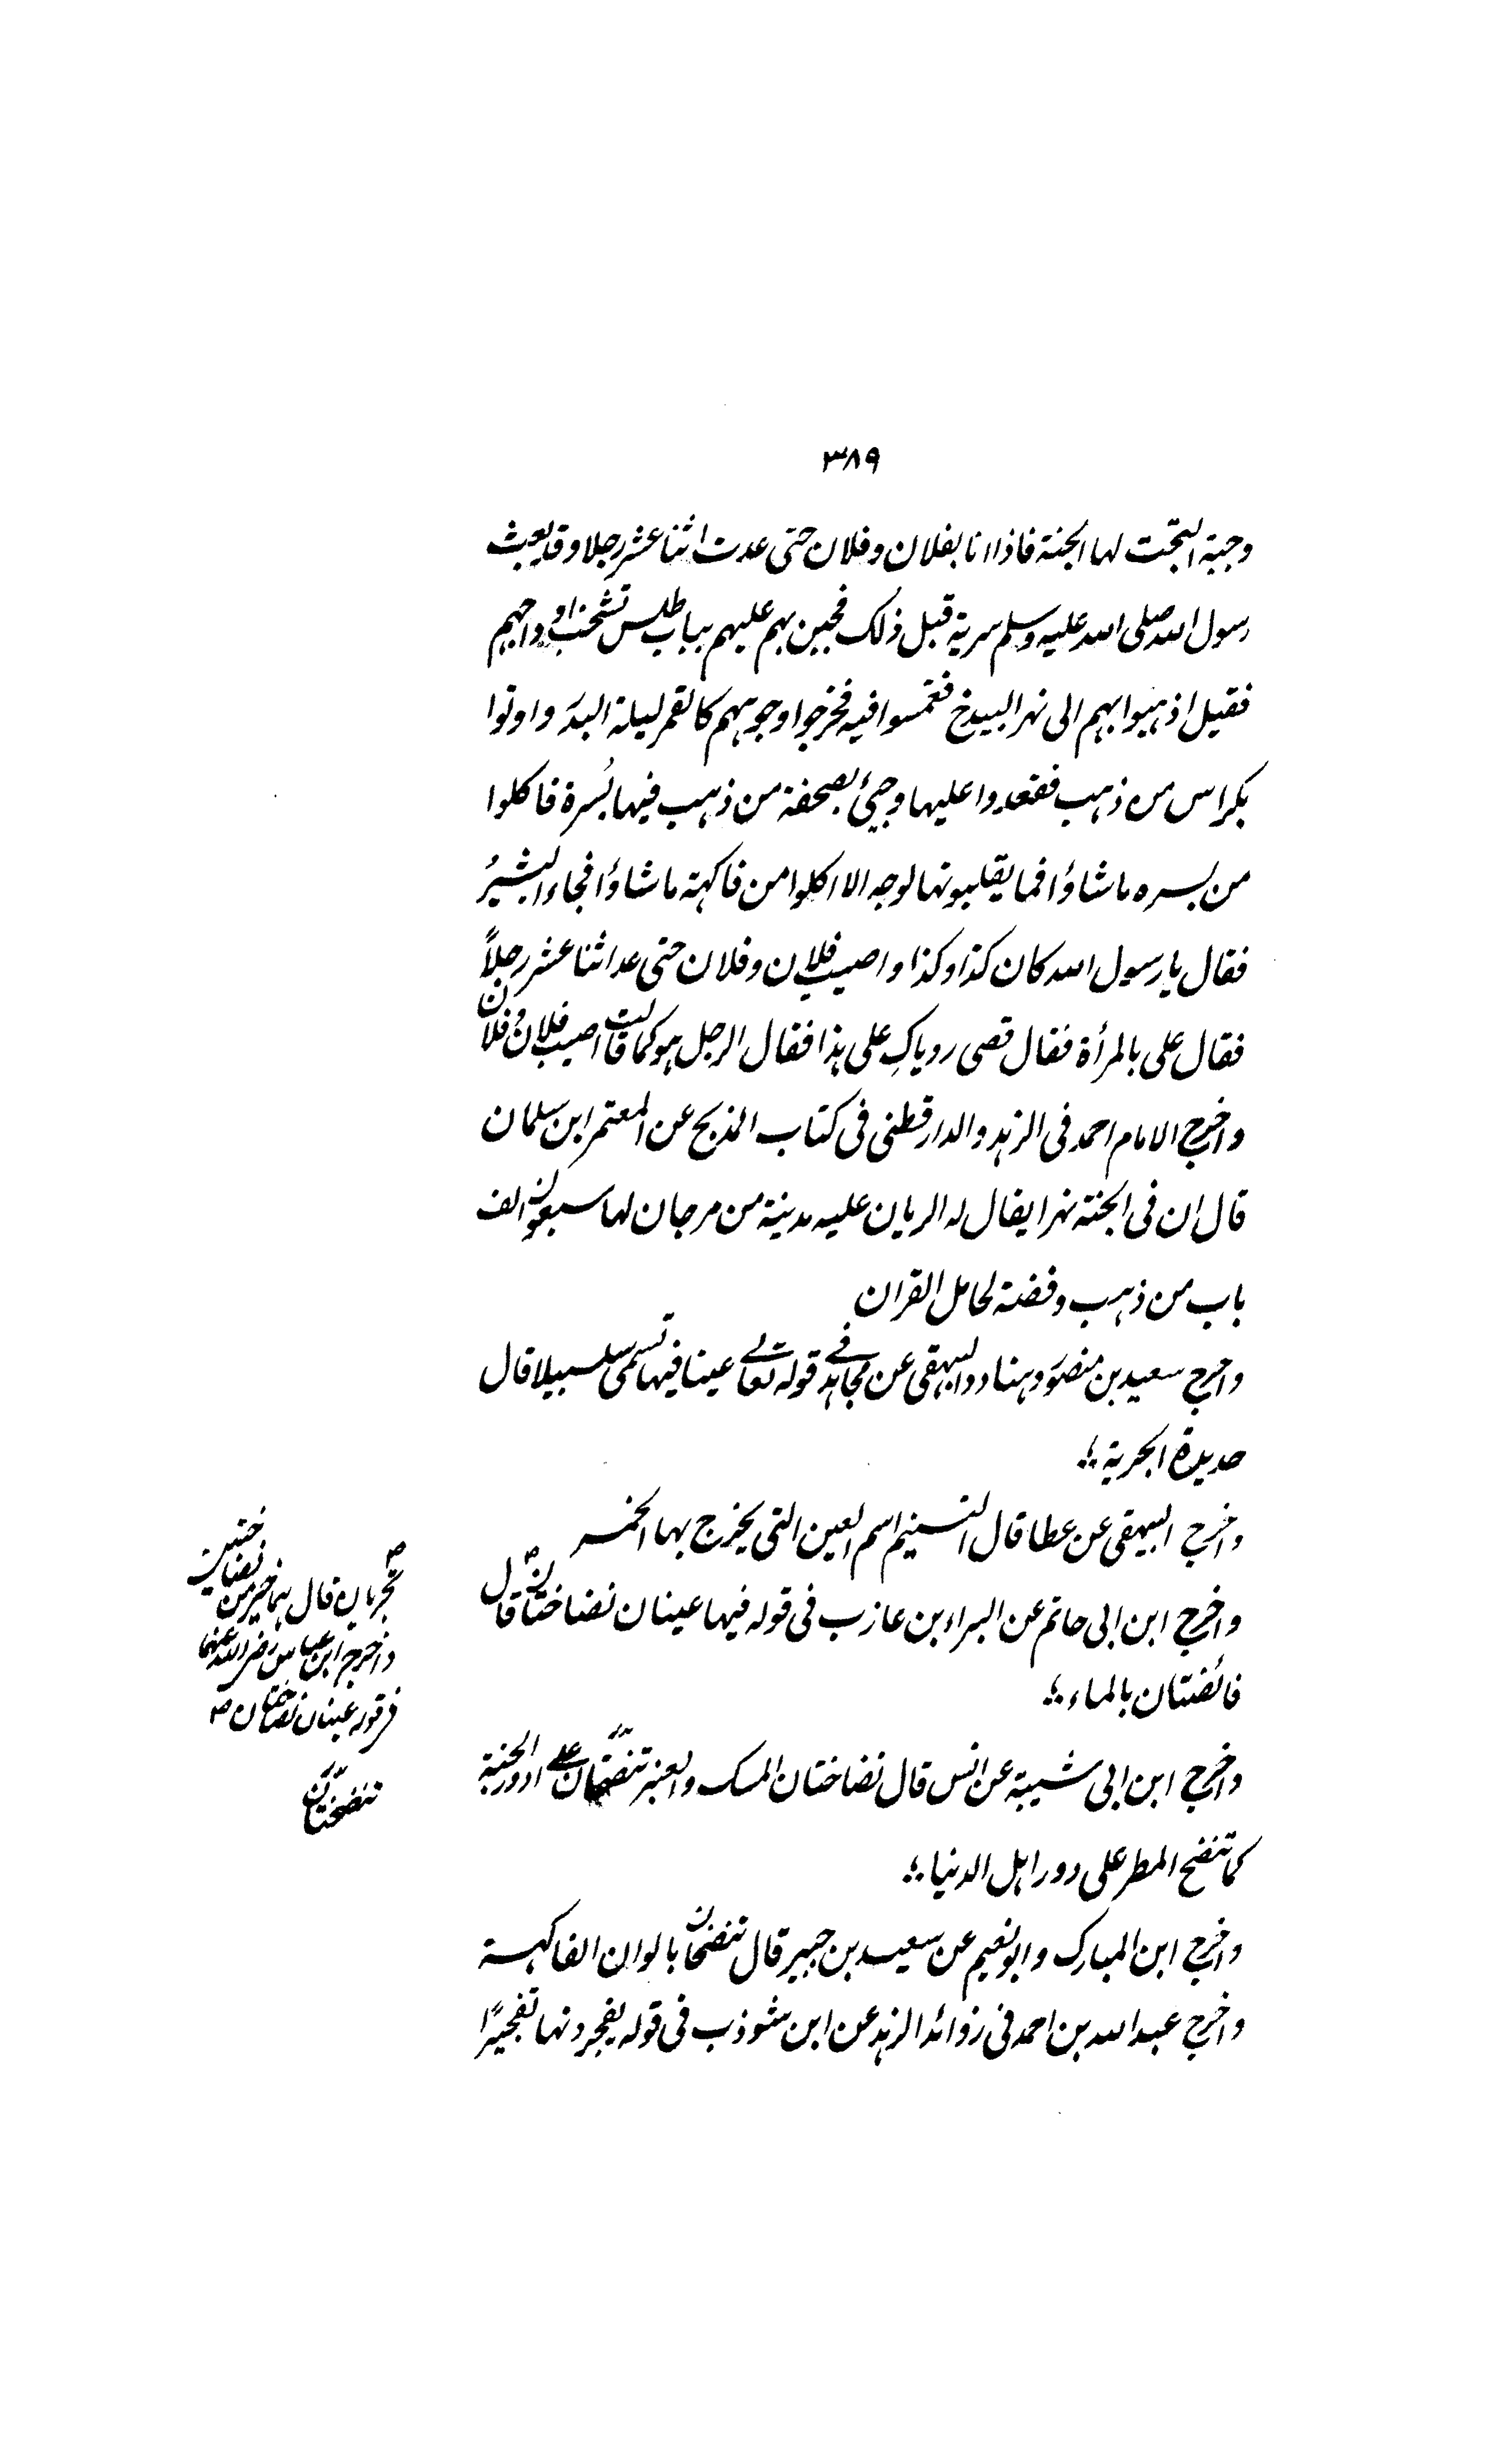 ٣٨٩
وجبة التجت لها الجنة فاذا انا بفلان وفلان حتى عدت اثنا عشر رجلا وقد بعث
رسول الله صلى الله عليه وسلم سرية قبل ذلك فجئن بهم عليهم ثياب طلس تشخب اوداجهم
فقيل اذهبوا بهم الى نهر البيدخ فغمسوا فيه فخرجوا وجوههم كالقمر ليلة البدر واوتوا
بكراس من ذهب فقعدوا عليها وجيئ بصحفة من ذهب فيها بُسرة فاكلوا
من بسره ما شاؤا فما يقلبونها لوجه الا اكلوا من فاكهة ما شاؤا فجاء البشيرُ
فقال يا رسول الله كان كذا وكذا واصيب فلان وفلان حتى عد اثنا عشر رجلاً
فقال على بالمرأة فقال قصى روياكِ على هذا فقال الرجل هو كما قالت اصيب فلان وفلان
واخرج الامام احمد فى الزهد والدارقطنى فى كتاب المذبح عن المعتمر ابن سلمان
قال ان فى الجنة نهرا يقال له الريان عليه مدينة من مرجان لها سبعون الف
باب من ذهب وفضة لحامل القران
واخرج سعيد بن منصور وهناد والبيهقى عن مجاهد فے قوله تعالے عينا فيها تسمى سلسبيلا قال
حديدة الجرية ؛
واخرج البيهقى عن عطا قال التسنيم اسم العين التى يخرج بها الخمر
واخرج ابن ابى حاتم عن البراء بن عازب فى قوله فيها عينان نضاختان قال
فائضتان بالماء ؛
واخرج ابن ابى شيبة عن انس قال نضاختان المسك والعنبر تنضخان على ادور الجنة
كما تنضح المطر على دور اهل الدنيا ؛
واخرج ابن المبارك وابو نعيم عن سعيد بن جبير قال تنضخان بالوان الفاكهة
واخرج عبد الله بن احمد فى زوائد الزهد عن ابن شوذب فى قوله يفجرونها تفجيرًا
تجريان قال هما خير من نضاختين
واخرج ابن عباس رضى الله عنهما
فى قوله عينان نضاختان
تنضختان